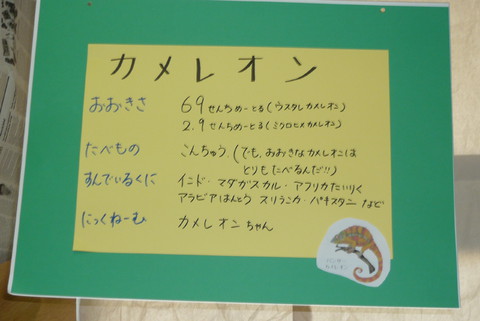 カメレオン
おおきさ 69せんちめーとる(ウスタレカメレオン)
2.9せんちめーとる(ミクロヒメカメレオン)
たべもの こんちゅう.(でも、おおきなカメレオンは
とりもたべるんだ!!)
すんでいるくに インド・マダガスカル・アフリカたいりく
アラビアはんとう スリランカ・パキスタン など
にっくねーむ カメレオンちゃん
カメレオン